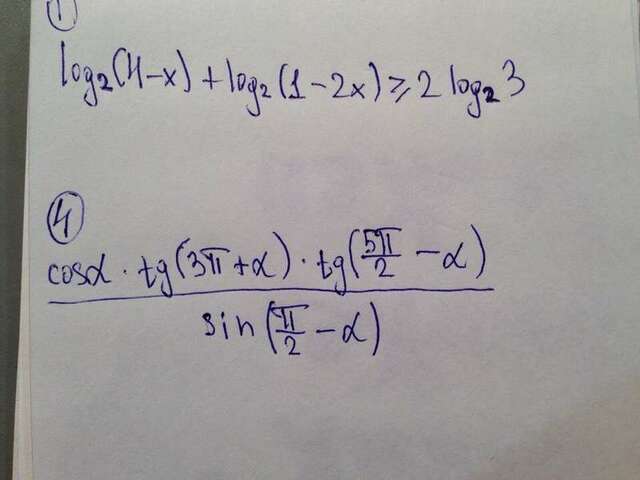 1
log₂(4-x)+log₂(1-2x)⩾2log₂3
4
cosα·tg(3π+α)·tg(5π/2-α)
sin(π/2-α)